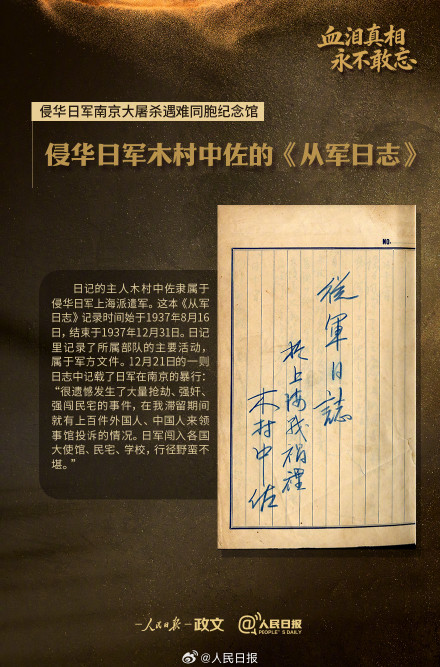 血泪真相
永不敢忘
侵华日军南京大屠杀遇难同胞纪念馆
侵华日军木村中佐的《从军日志》
日记的主人木村中佐隶属于
侵华日军上海派遣军。这本《从军
日志》记录时间始于1937年8月16
日，结束于1937年12月31日。日记
里记录了所属部队的主要活动，
属于军方文件。12月21日的一则
日志中记载了日军在南京的暴行：
“很遗憾发生了大量抢劫、强奸、
强闯民宅的事件，在我滞留期间
就有上百件外国人、中国人来领
事馆投诉的情况。日军闯入各国
大使馆、民宅、学校，行径野蛮不
堪。”
NO.
從軍日誌
木村中佐
人民日报
政文
@人民日报
PEOPLE'S DAILY
@人民日报